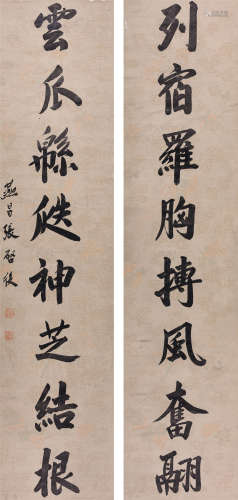 列宿羅胸搏風奮翮
雲瓜緜瓞神芝結根
燕昌張啓後